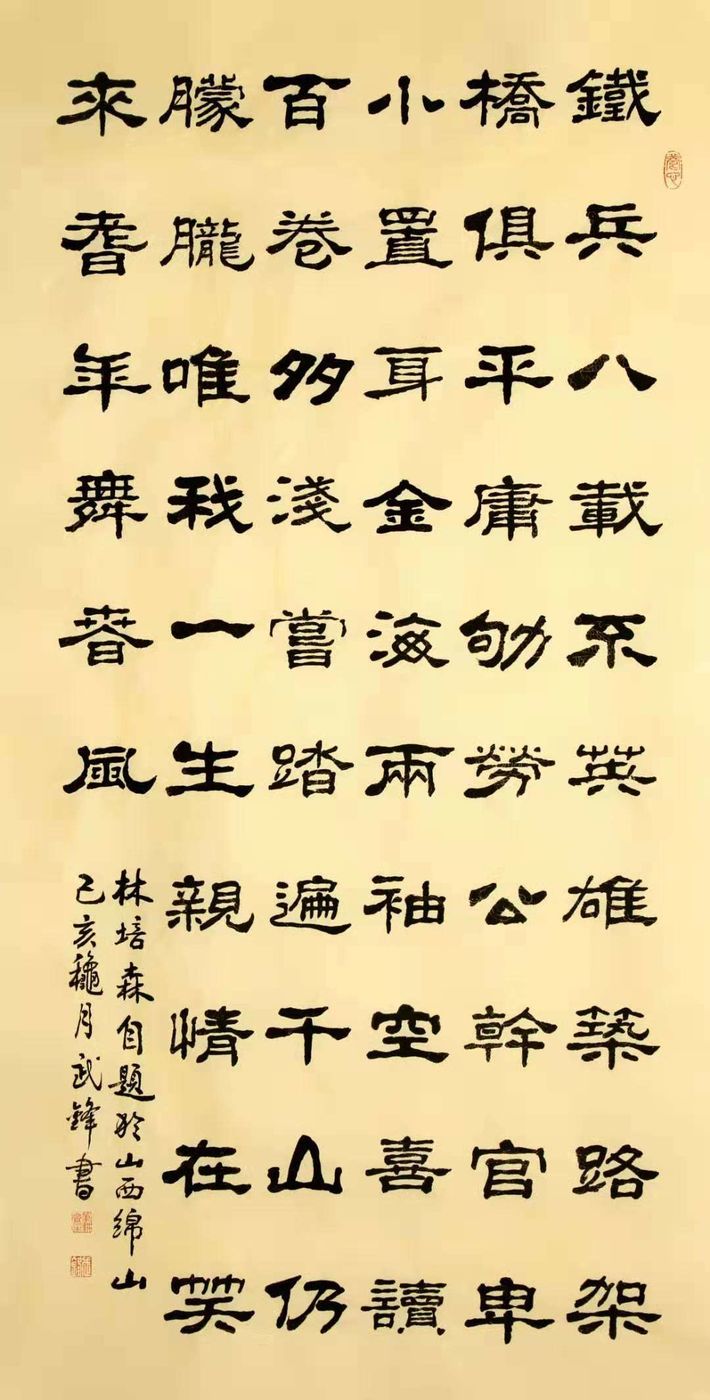 鐵兵八載不英雄築路架
橋俱平庸劬勞公幹官卑
小置身金海兩袖空喜讀
百卷多淺嘗踏遍千山仍
朦朧唯我一生親情在笑
來耆年舞春風
林培森自題於山西綿山
己亥龝月武鋒書